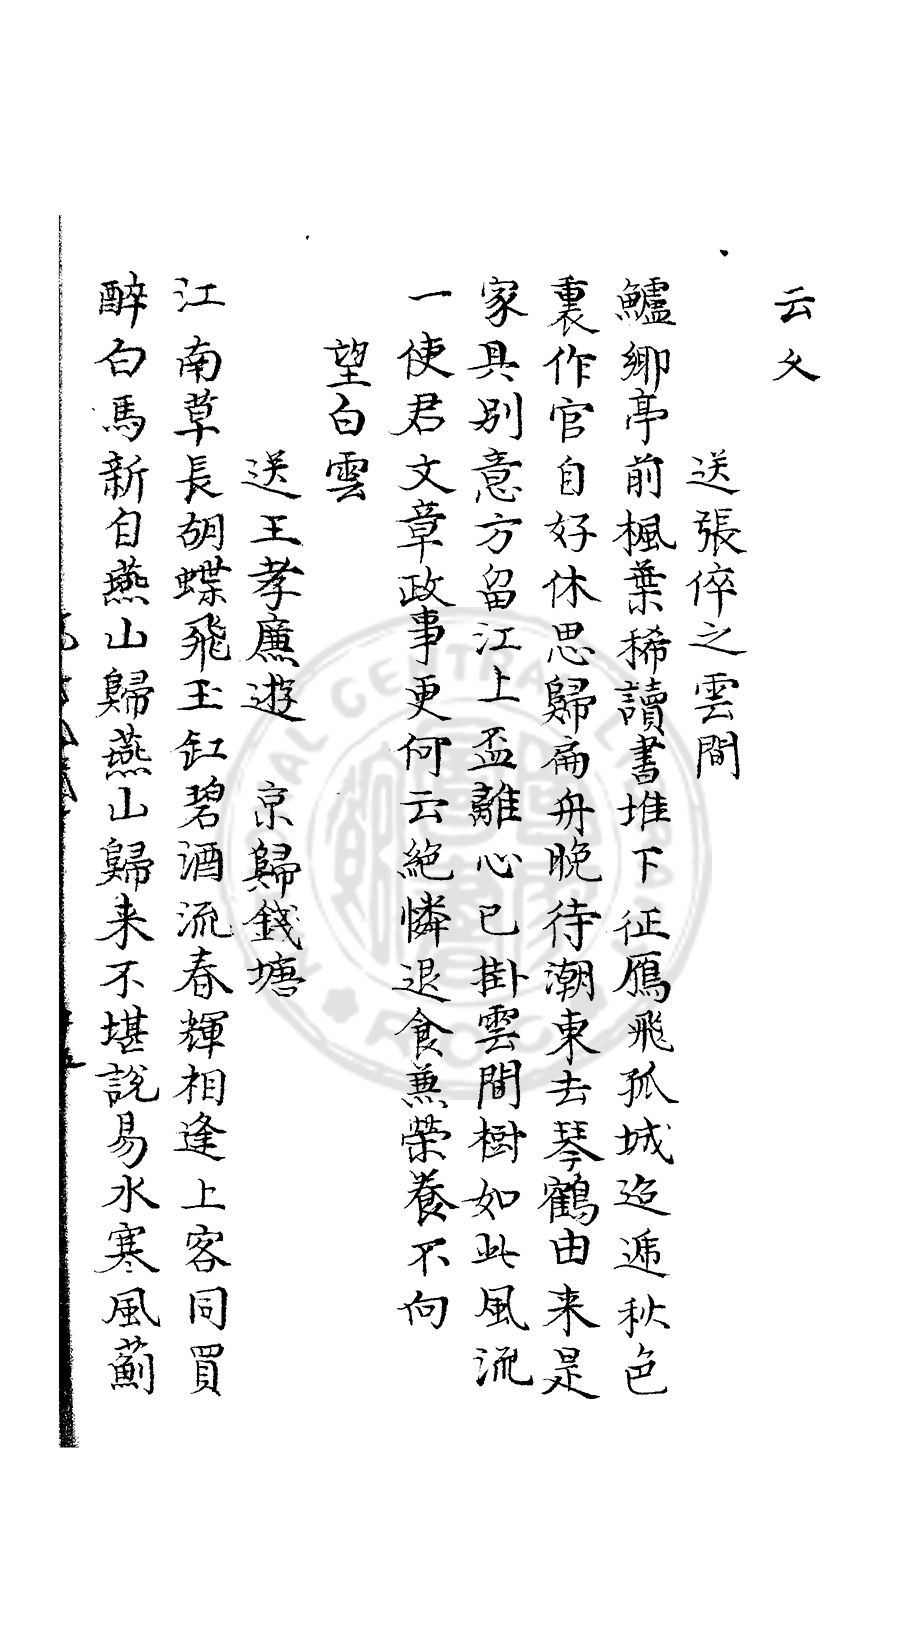 云乆
送張倅之雲間
鱸鄉亭前楓葉稀讀書堆下征鴈飛孤城迢遞秋色
裏作官自好休思歸扁舟晚待潮東去琴鶴由来是
家具别意方留江上盃離心已掛雲間樹如此風流
一使君文章政事更何云絶憐退食兼榮養不向
望白雲
送王孝廉遊 京歸錢塘
江南草長胡蝶飛玉缸碧酒流春輝相逢上客同買
醉白馬新自燕山歸燕山歸来不堪說易水寒風薊
NATIONAL CENTRAL LIBRARY R.O.C.